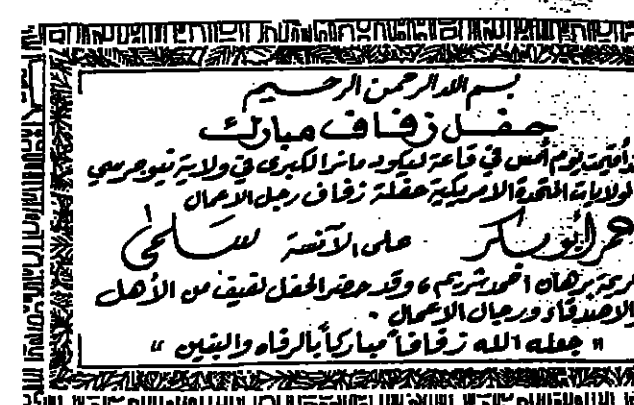 بسم الله الرحمن الرحيم
حفل زفاف مبارك
أقيمت يوم أمس في قاعة ليكود مانر الكبرى في ولاية نيوجرسي
لولايات المتحدة الامريكية حفلة زفاف رجل الاعمال
عمر أبو سكر على الآنسة سلمى
كريمة برهان أحمد شريم، وقد حضر الحفل لفيف من الأهل
والاصدقاء ورجال الاعمال .
" جعله الله زفافاً مباركاً بالرفاه والبنين "